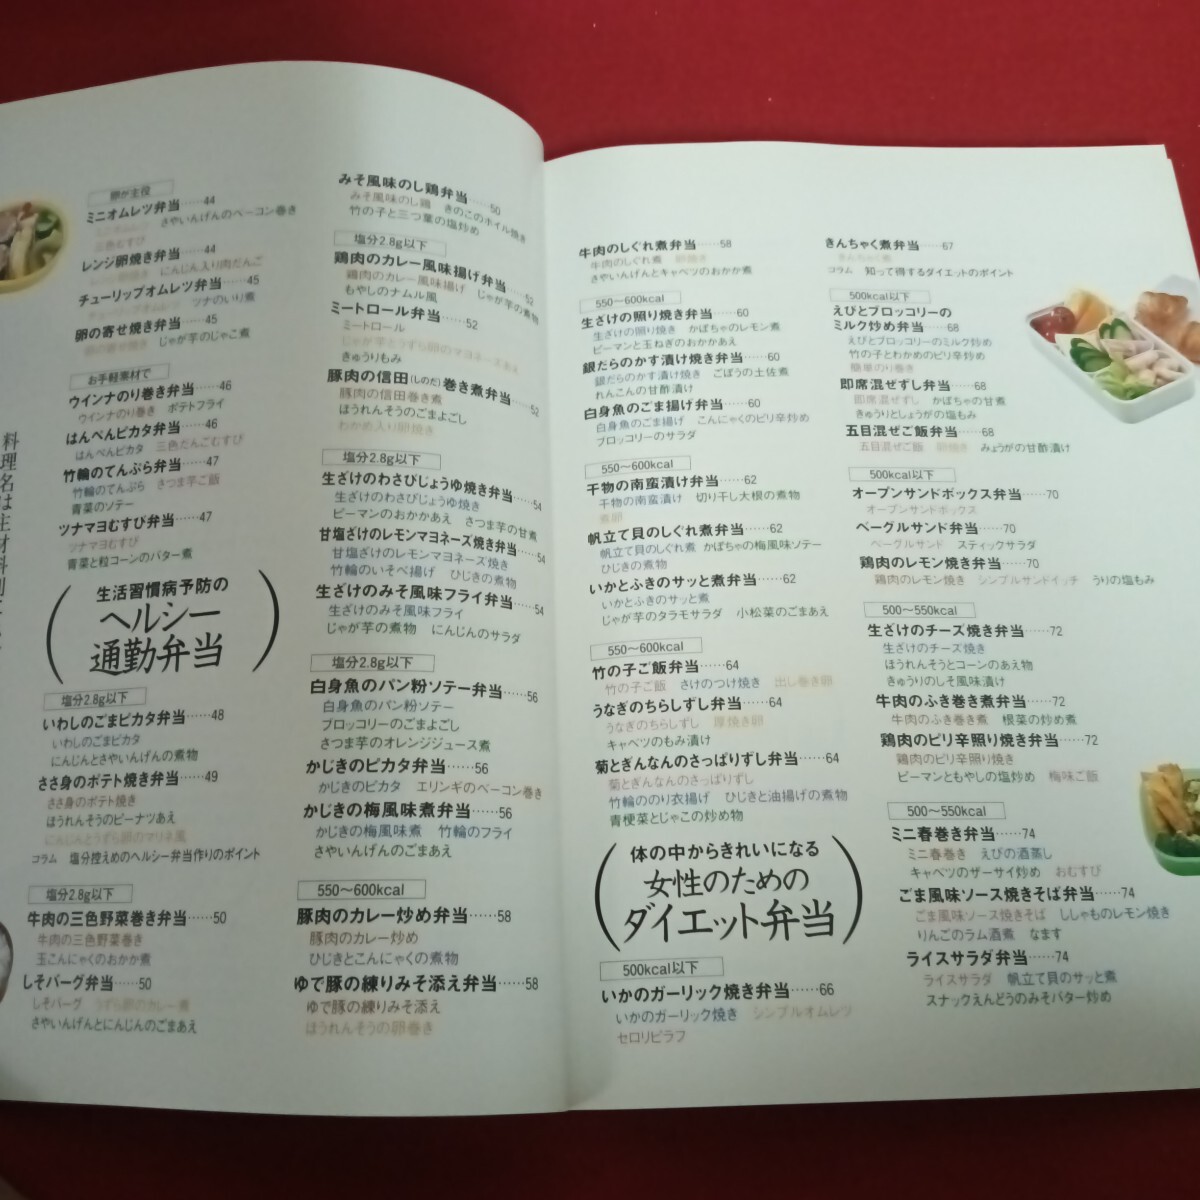 卵が主役
ミニオムレツ弁当……44
ミニオムレツ さやいんげんのベーコン巻き
三色むすび
レンジ卵焼き弁当……44
にんじん入り肉だんご
チューリップオムレツ弁当……45
チューリップオムレツ ツナのいり煮
卵の寄せ焼き弁当……45
卵の寄せ焼き じゃが芋のじゃこ煮
お手軽素材で
ウインナのり巻き弁当……46
ウインナのり巻き ポテトフライ
はんぺんピカタ弁当……46
はんぺんピカタ 三色だんごむすび
竹輪のてんぷら弁当……47
竹輪のてんぷら さつま芋ご飯
青菜のソテー
ツナマヨむすび弁当……47
ツナマヨむすび
青菜と粒コーンのバター煮
生活習慣病予防の
ヘルシー
通勤弁当
塩分2.8g以下
いわしのごまピカタ弁当……48
いわしのごまピカタ
にんじんとさやいんげんの煮物
ささ身のポテト焼き弁当……49
ささ身のポテト焼き
ほうれんそうのピーナツあえ
にんじんとうずら卵のマリネ風
コラム 塩分控えめのヘルシー弁当作りのポイント
塩分2.8g以下
牛肉の三色野菜巻き弁当……50
牛肉の三色野菜巻き
玉こんにゃくのおかか煮
しそバーグ弁当……50
しそバーグ うずら卵のカレー煮
さやいんげんとにんじんのごまあえ
みそ風味のし鶏弁当……50
みそ風味のし鶏 きのこのホイル焼き
竹の子と三つ葉の塩炒め
塩分2.8g以下
鶏肉のカレー風味揚げ弁当……52
鶏肉のカレー風味揚げ じゃが芋の煮物
もやしのナムル風
ミートロール弁当……52
ミートロール
じゃが芋とうずら卵のマヨネーズあえ
きゅうりもみ
豚肉の信田(しのだ)巻き煮弁当……52
豚肉の信田巻き煮
ほうれんそうのごまよごし
わかめ入り卵焼き
塩分2.8g以下
生ざけのわさびじょうゆ焼き弁当……54
生ざけのわさびじょうゆ焼き
ピーマンのおかかあえ さつま芋の甘煮
甘塩ざけのレモンマヨネーズ焼き弁当……54
甘塩ざけのレモンマヨネーズ焼き
竹輪のいそべ揚げ ひじきの煮物
生ざけのみそ風味フライ弁当……54
生ざけのみそ風味フライ
じゃが芋の煮物 にんじんのサラダ
塩分2.8g以下
白身魚のパン粉ソテー弁当……56
白身魚のパン粉ソテー
ブロッコリーのごまよごし
さつま芋のオレンジジュース煮
かじきのピカタ弁当……56
かじきのピカタ エリンギのベーコン巻き
かじきの梅風味煮弁当……56
かじきの梅風味煮 竹輪のフライ
さやいんげんのごまあえ
550〜600kcal
豚肉のカレー炒め弁当……58
豚肉のカレー炒め
ひじきとこんにゃくの煮物
ゆで豚の練りみそ添え弁当……58
ゆで豚の練りみそ添え
ほうれんそうの卵巻き
牛肉のしぐれ煮弁当……58
牛肉のしぐれ煮 卵焼き
さやいんげんとキャベツのおかか煮
550〜600kcal
生ざけの照り焼き弁当……60
生ざけの照り焼き かぼちゃのレモン煮
ピーマンと玉ねぎのおかかあえ
銀だらのかす漬け焼き弁当……60
銀だらのかす漬け焼き ごぼうの土佐煮
れんこんの甘酢漬け
白身魚のごま揚げ弁当……60
白身魚のごま揚げ こんにゃくのピリ辛炒め
ブロッコリーのサラダ
550〜600kcal
干物の南蛮漬け弁当……62
干物の南蛮漬け 切り干し大根の煮物
煮卵
帆立て貝のしぐれ煮弁当……62
帆立て貝のしぐれ煮 かぼちゃの梅風味ソテー
ひじきの煮物
いかとふきのサッと煮弁当……62
いかとふきのサッと煮
じゃが芋のタラモサラダ 小松菜のごまあえ
550〜600kcal
竹の子ご飯弁当……64
竹の子ご飯 さけのつけ焼き 出し巻き卵
うなぎのちらしずし弁当……64
うなぎのちらしずし 厚焼き卵
キャベツのもみ漬け
菊とぎんなんのさっぱりずし弁当……64
菊とぎんなんのさっぱりずし
竹輪ののり衣揚げ ひじきと油揚げの煮物
青梗菜とじゃこの炒め物
体の中からきれいになる
女性のための
ダイエット弁当
500kcal以下
いかのガーリック焼き弁当……66
いかのガーリック焼き シンプルオムレツ
セロリピラフ
きんちゃく煮弁当……67
きんちゃく煮
コラム 知って得するダイエットのポイント
500kcal以下
えびとブロッコリーの
ミルク炒め弁当……68
えびとブロッコリーのミルク炒め
竹の子とわかめのピリ辛炒め
簡単のり巻き
即席混ぜずし弁当……68
即席混ぜずし かぼちゃの甘煮
きゅうりとしょうがの塩もみ
五目混ぜご飯弁当……68
五目混ぜご飯 卵焼き みょうがの甘酢漬け
500kcal以下
オープンサンドボックス弁当……70
オープンサンドボックス
ベーグルサンド弁当……70
ベーグルサンド スティックサラダ
鶏肉のレモン焼き弁当……70
鶏肉のレモン焼き シンプルサンドイッチ うりの塩もみ
500〜550kcal
生ざけのチーズ焼き弁当……72
生ざけのチーズ焼き
ほうれんそうとコーンのあえ物
きゅうりのしそ風味漬け
牛肉のふき巻き煮弁当……72
牛肉のふき巻き煮 根菜の炒め煮
鶏肉のピリ辛照り焼き弁当……72
鶏肉のピリ辛照り焼き
ピーマンともやしの塩炒め 梅味ご飯
500〜550kcal
ミニ春巻き弁当……74
ミニ春巻き えびの酒蒸し
キャベツのザーサイ炒め おむすび
ごま風味ソース焼きそば弁当……74
ごま風味ソース焼きそば ししゃものレモン焼き
りんごのラム酒煮 なます
ライスサラダ弁当……74
ライスサラダ 帆立て貝のサッと煮
スナックえんどうのみそバター炒め